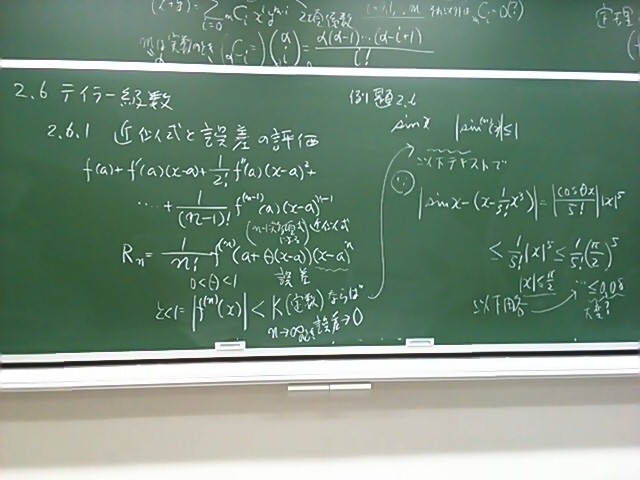 (x+y) = Σ i=0 mCi x^i y^m-i 二項係数
mは実数のとき (αCi =) (α i) = α(α-1)…(α-i+1) / i!
2.6 テイラー級数
2.6.1 近似式と誤差の評価
f(a)+f'(a)(x-a)+1/2! f''(a)(x-a)²+
…+ 1/(n-1)! f^(n-1)(a)(x-a)^n-1
近似式
Rn = 1/n! f^(n)(a+θ(x-a))(x-a)^n
0<θ<1 誤差
とくに |f^(n)(x)| < K(定数) ならば
n→∞ 誤差→0
例題2.6
sin x |sin^(n)(x)|≤1
以下テキストで
∵ |sin x-(x-1/3! x³)| = |cosθx / 5!| |x|⁵
≤ 1/5! |x|⁵ ≤ 1/5! (π/2)⁵
|x|≤π/2 … ≤0.08
以下同